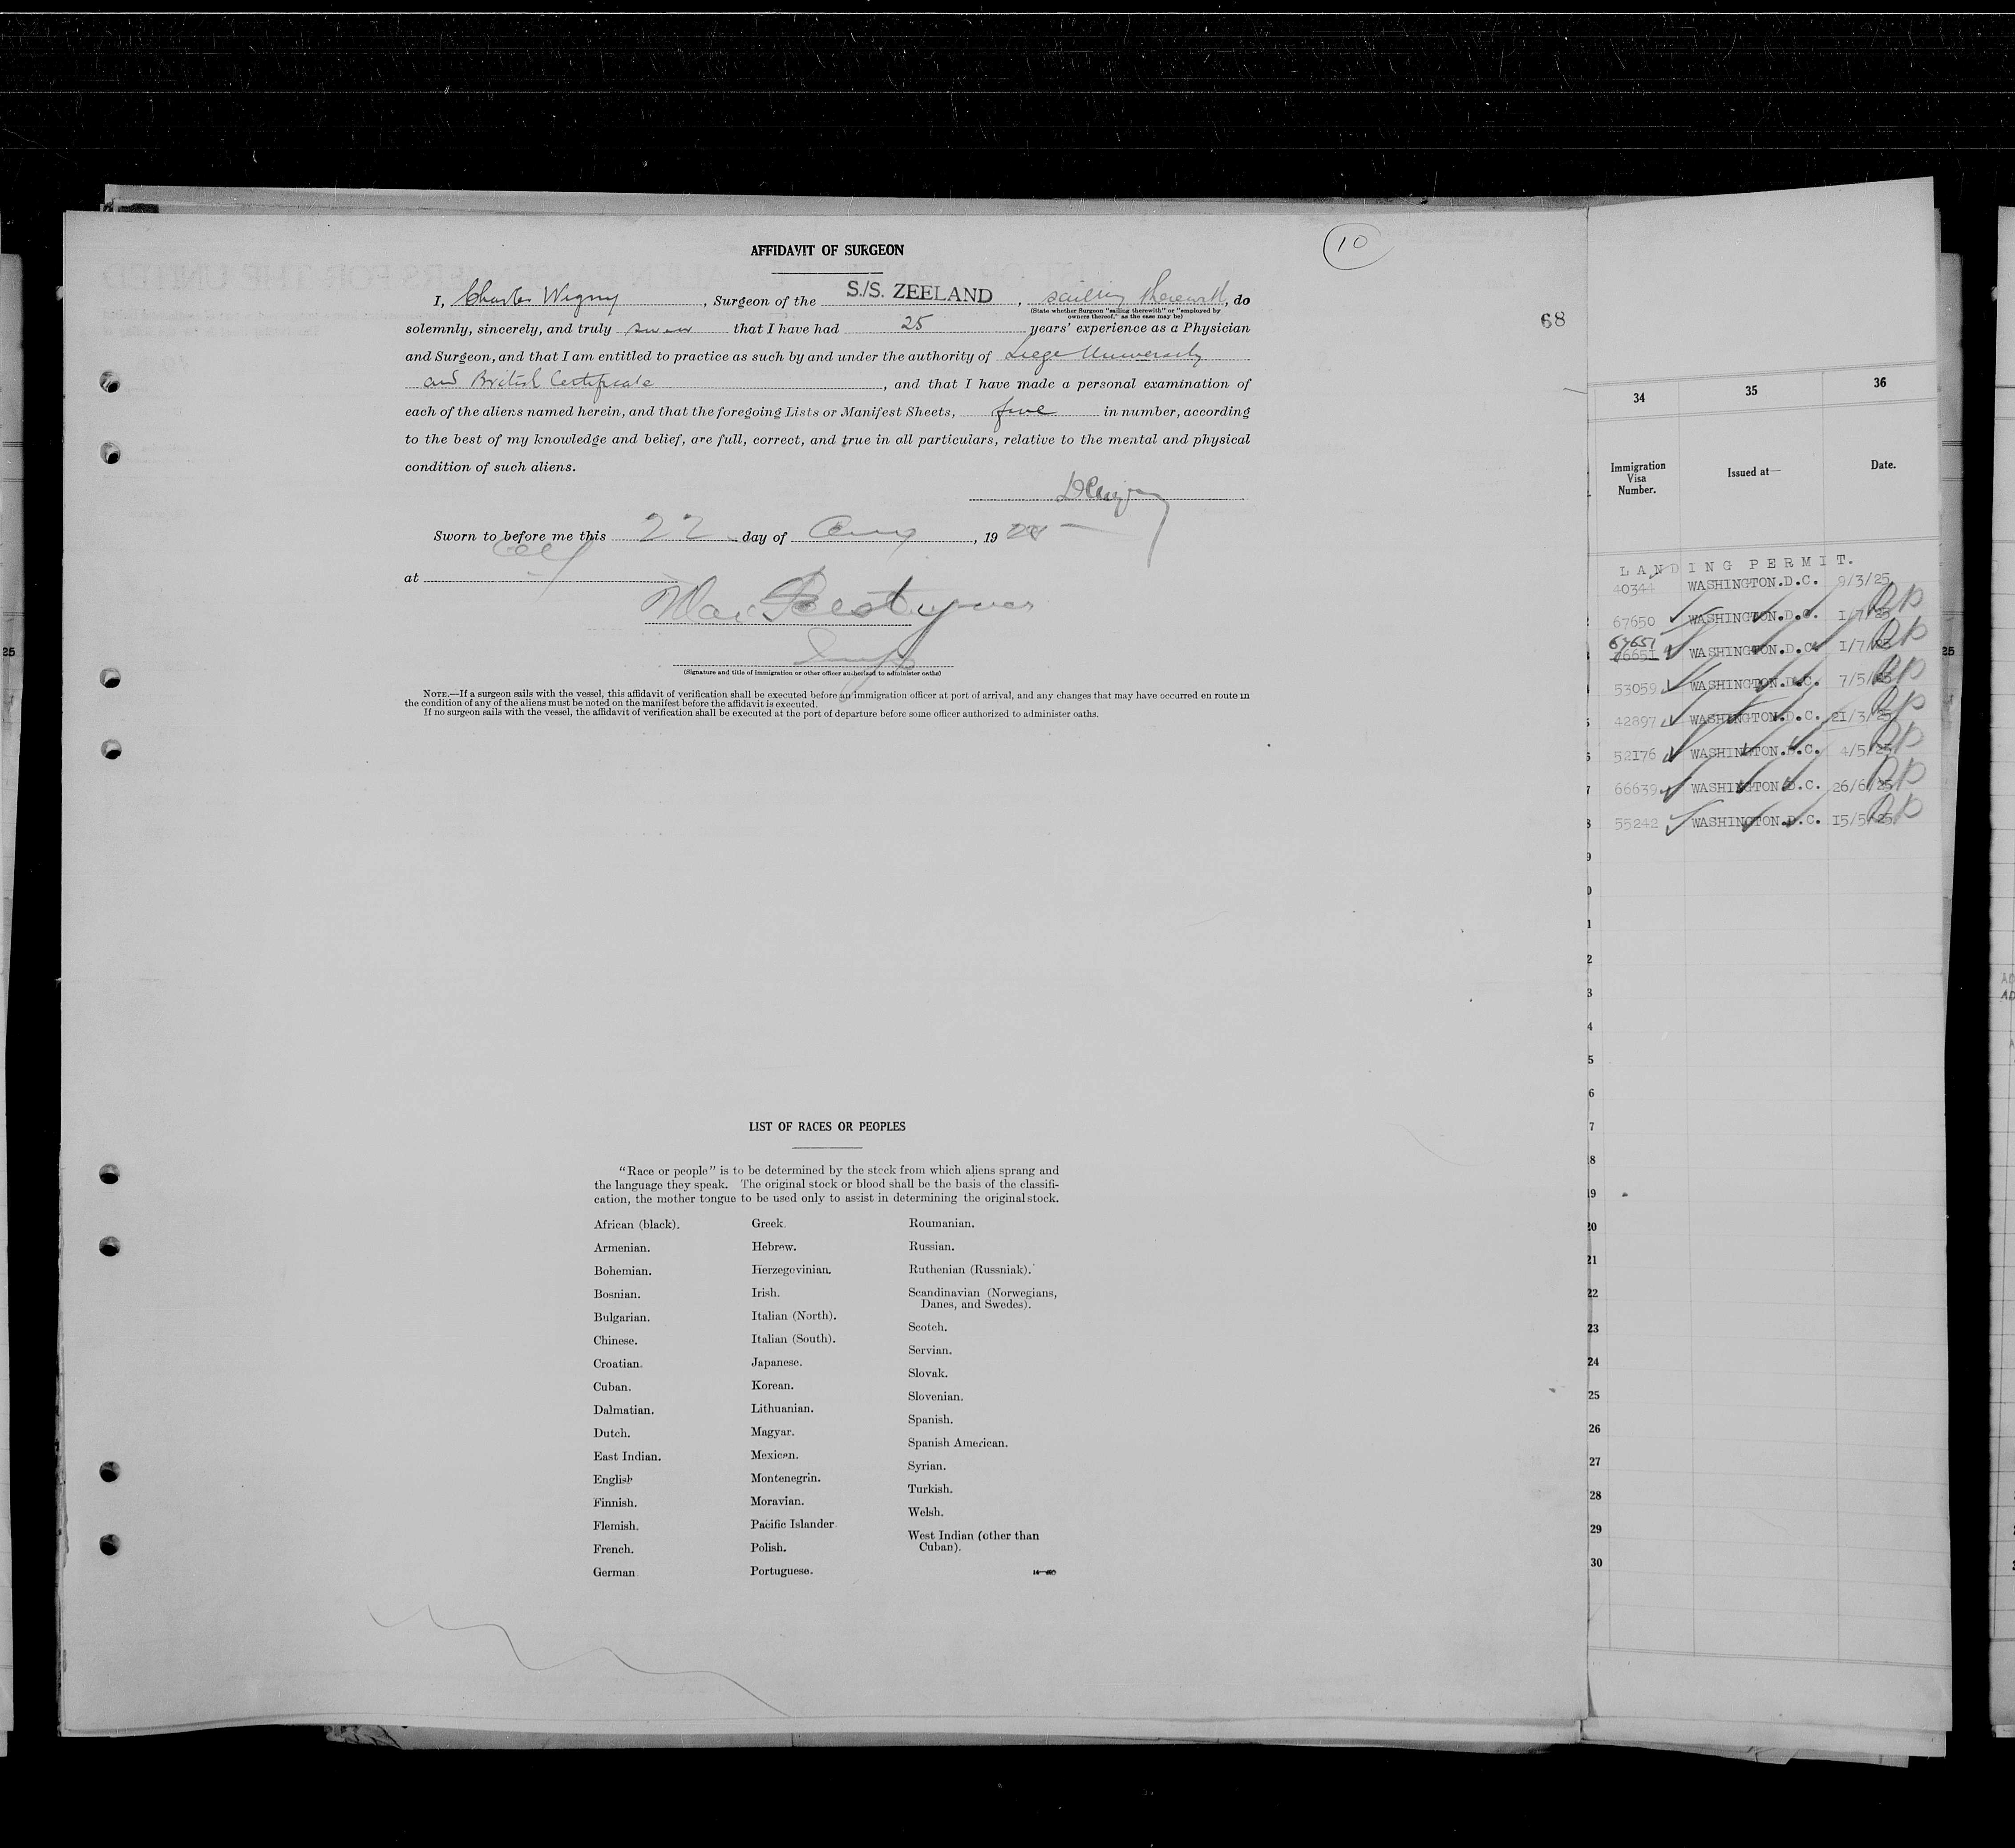 10
AFFIDAVIT OF SURGEON
I, Charles Wigny, Surgeon of the S./S. ZEELAND, sailing therewith, do
(State whether Surgeon "sailing therewith" or "employed by
owners thereof," as the case may be)
solemnly, sincerely, and truly swear that I have had 25 years' experience as a Physician
and Surgeon, and that I am entitled to practice as such by and under the authority of Liege University
and British Certificate, and that I have made a personal examination of
each of the aliens named herein, and that the foregoing Lists or Manifest Sheets, five in number, according
to the best of my knowledge and belief, are full, correct, and true in all particulars, relative to the mental and physical
condition of such aliens.
Sworn to before me this 22 day of Aug, 19
at
(Signature and title of immigration or other officer authorized to administer oaths)
NOTE.—If a surgeon sails with the vessel, this affidavit of verification shall be executed before an immigration officer at port of arrival, and any changes that may have occurred en route in
the condition of any of the aliens must be noted on the manifest before the affidavit is executed.
If no surgeon sails with the vessel, the affidavit of verification shall be executed at the port of departure before some officer authorized to administer oaths.
LIST OF RACES OR PEOPLES
"Race or people" is to be determined by the stock from which aliens sprang and
the language they speak. The original stock or blood shall be the basis of the classifi-
cation, the mother tongue to be used only to assist in determining the original stock.
African (black).
Armenian.
Bohemian.
Bosnian.
Bulgarian.
Chinese.
Croatian.
Cuban.
Dalmatian.
Dutch.
East Indian.
English
Finnish.
Flemish.
French.
German
Greek.
Hebrew.
Herzegovinian.
Irish.
Italian (North).
Italian (South).
Japanese.
Korean.
Lithuanian.
Magyar.
Mexican.
Montenegrin.
Moravian.
Pacific Islander
Polish.
Portuguese.
Roumanian.
Russian.
Ruthenian (Russniak).
Scandinavian (Norwegians,
Danes, and Swedes).
Scotch.
Servian.
Slovak.
Slovenian.
Spanish.
Spanish American.
Syrian.
Turkish.
Welsh.
West Indian (other than
Cuban).
68
34 35 36
Immigration
Visa
Number.
Issued at—
Date.
LANDING PERMIT.
40344 WASHINGTON.D.C. 9/3/25
67650 WASHINGTON.D.C. 1/7/25
67651
76651 WASHINGTON.D.C. 1/7/25
53059 WASHINGTON.D.C. 7/5/25
42897 WASHINGTON.D.C. 21/3/25
52176 WASHINGTON.D.C. 4/5/25
66639 WASHINGTON.D.C. 26/6/25
55242 WASHINGTON.D.C. 15/5/25
20
21
22
23
24
25
26
27
28
29
30
25
25